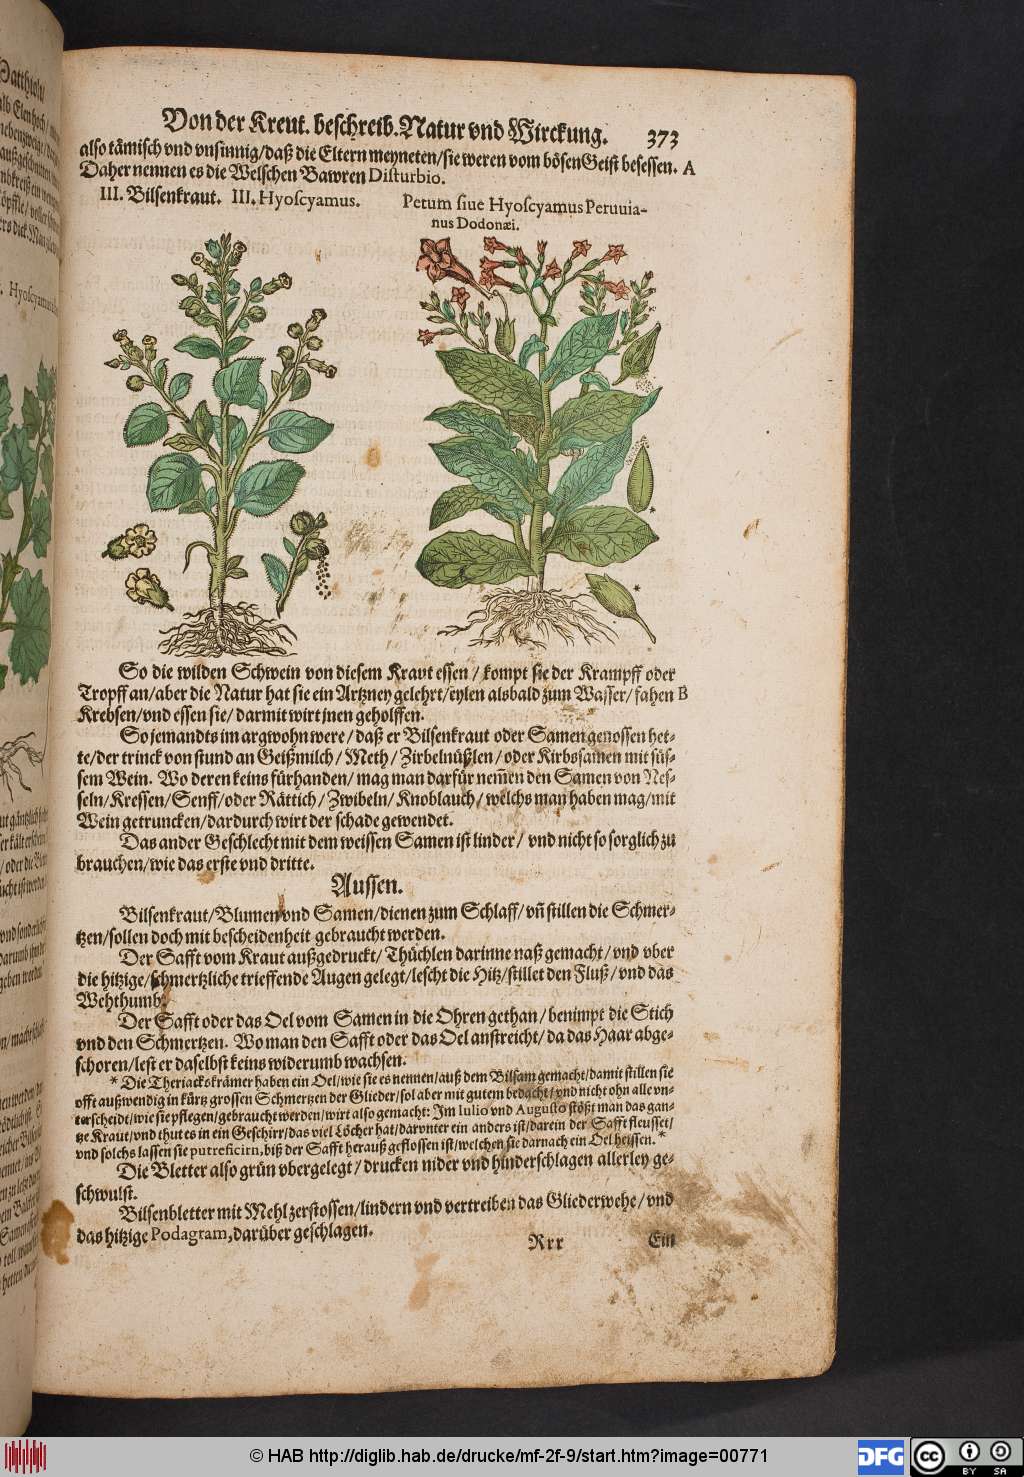 Von der Kreut. beschreib. Natur vnd Wirckung. 373
also tämisch vnd vnsinnig/daß die Eltern meyneten/sie weren vom bösen Geist besessen. A
Daher nennen es die Welschen Bawren Disturbio.
III. Bilsenkraut. III. Hyoscyamus.
Petum siue Hyoscyamus Peruuia-
nus Dodonæi.
So die wilden Schwein von diesem Kraut essen / kompt sie der Krampff oder
Tropff an/aber die Natur hat sie ein Artzney gelehrt/eylen alsbald zum Wasser/ fahen B
Krebsen/vnd essen sie/ darmit wirt jnen geholffen.
So jemandts im argwohn were / daß er Bilsenkraut oder Samen genossen het-
te/der trinck von stund an Geißmilch / Meth / Zirbelnüßlen / oder Kirbssamen mit süs-
sem Wein. Wo deren keins fürhanden/ mag man darfür nem̃en den Samen von Nes-
seln/Kressen/Senff/oder Rättich/ Zwibeln/ Knoblauch/ welchs man haben mag/mit
Wein getruncken/dardurch wirt der schade gewendet.
Das ander Geschlecht mit dem weissen Samen ist linder / vnd nicht so sorglich zu
brauchen/wie das erste vnd dritte.
Aussen.
Bilsenkraut/Blumen vnd Samen/dienen zum Schlaff/ vñ stillen die Schmer-
tzen/sollen doch mit bescheidenheit gebraucht werden.
Der Safft vom Kraut außgedruckt/ Thüchlen darinne naß gemacht / vnd vber
die hitzige/schmertzliche trieffende Augen gelegt/lescht die Hitz/stillet den Fluß/ vnd das
Wehthumb.
Der Safft oder das Oel vom Samen in die Ohren gethan / benimpt die Stich
vnd den Schmertzen. Wo man den Safft oder das Oel anstreicht/ da das Haar abge-
schoren/lest er daselbst keins widerumb wachsen.
* Die Theriackskrämer haben ein Oel/wie sie es nennen/auß dem Bilsam gemacht/damit stillen sie
offt außwendig in kürtz grossen Schmertzen der Glieder/sol aber mit gutem bedacht/vnd nicht ohn alle vn-
terscheidt/wie sie pflegen/gebraucht werden/wirt also gemacht: Im Iulio vnd Augusto stößt man das gan-
tze Kraut/vnd thut es in ein Geschirr/das viel Löcher hat/darvnter ein anders ist/darein der Safft fleusset/
vnd solchs lassen sie putreficirn, biß der Safft herauß geflossen ist/welchen sie darnach ein Oel heissen. *
Die Bletter also grün vbergelegt / drucken nider vnd hinderschlagen allerley ge-
schwulst.
Bilsenbletter mit Mehl zerstossen/lindern vnd vertreiben das Gliederwehe/ vnd
das hitzige Podagram, darüber geschlagen.
Rrr Ein
© HAB http://diglib.hab.de/drucke/mf-2f-9/start.htm?image=00771
DFG
cc BY SA